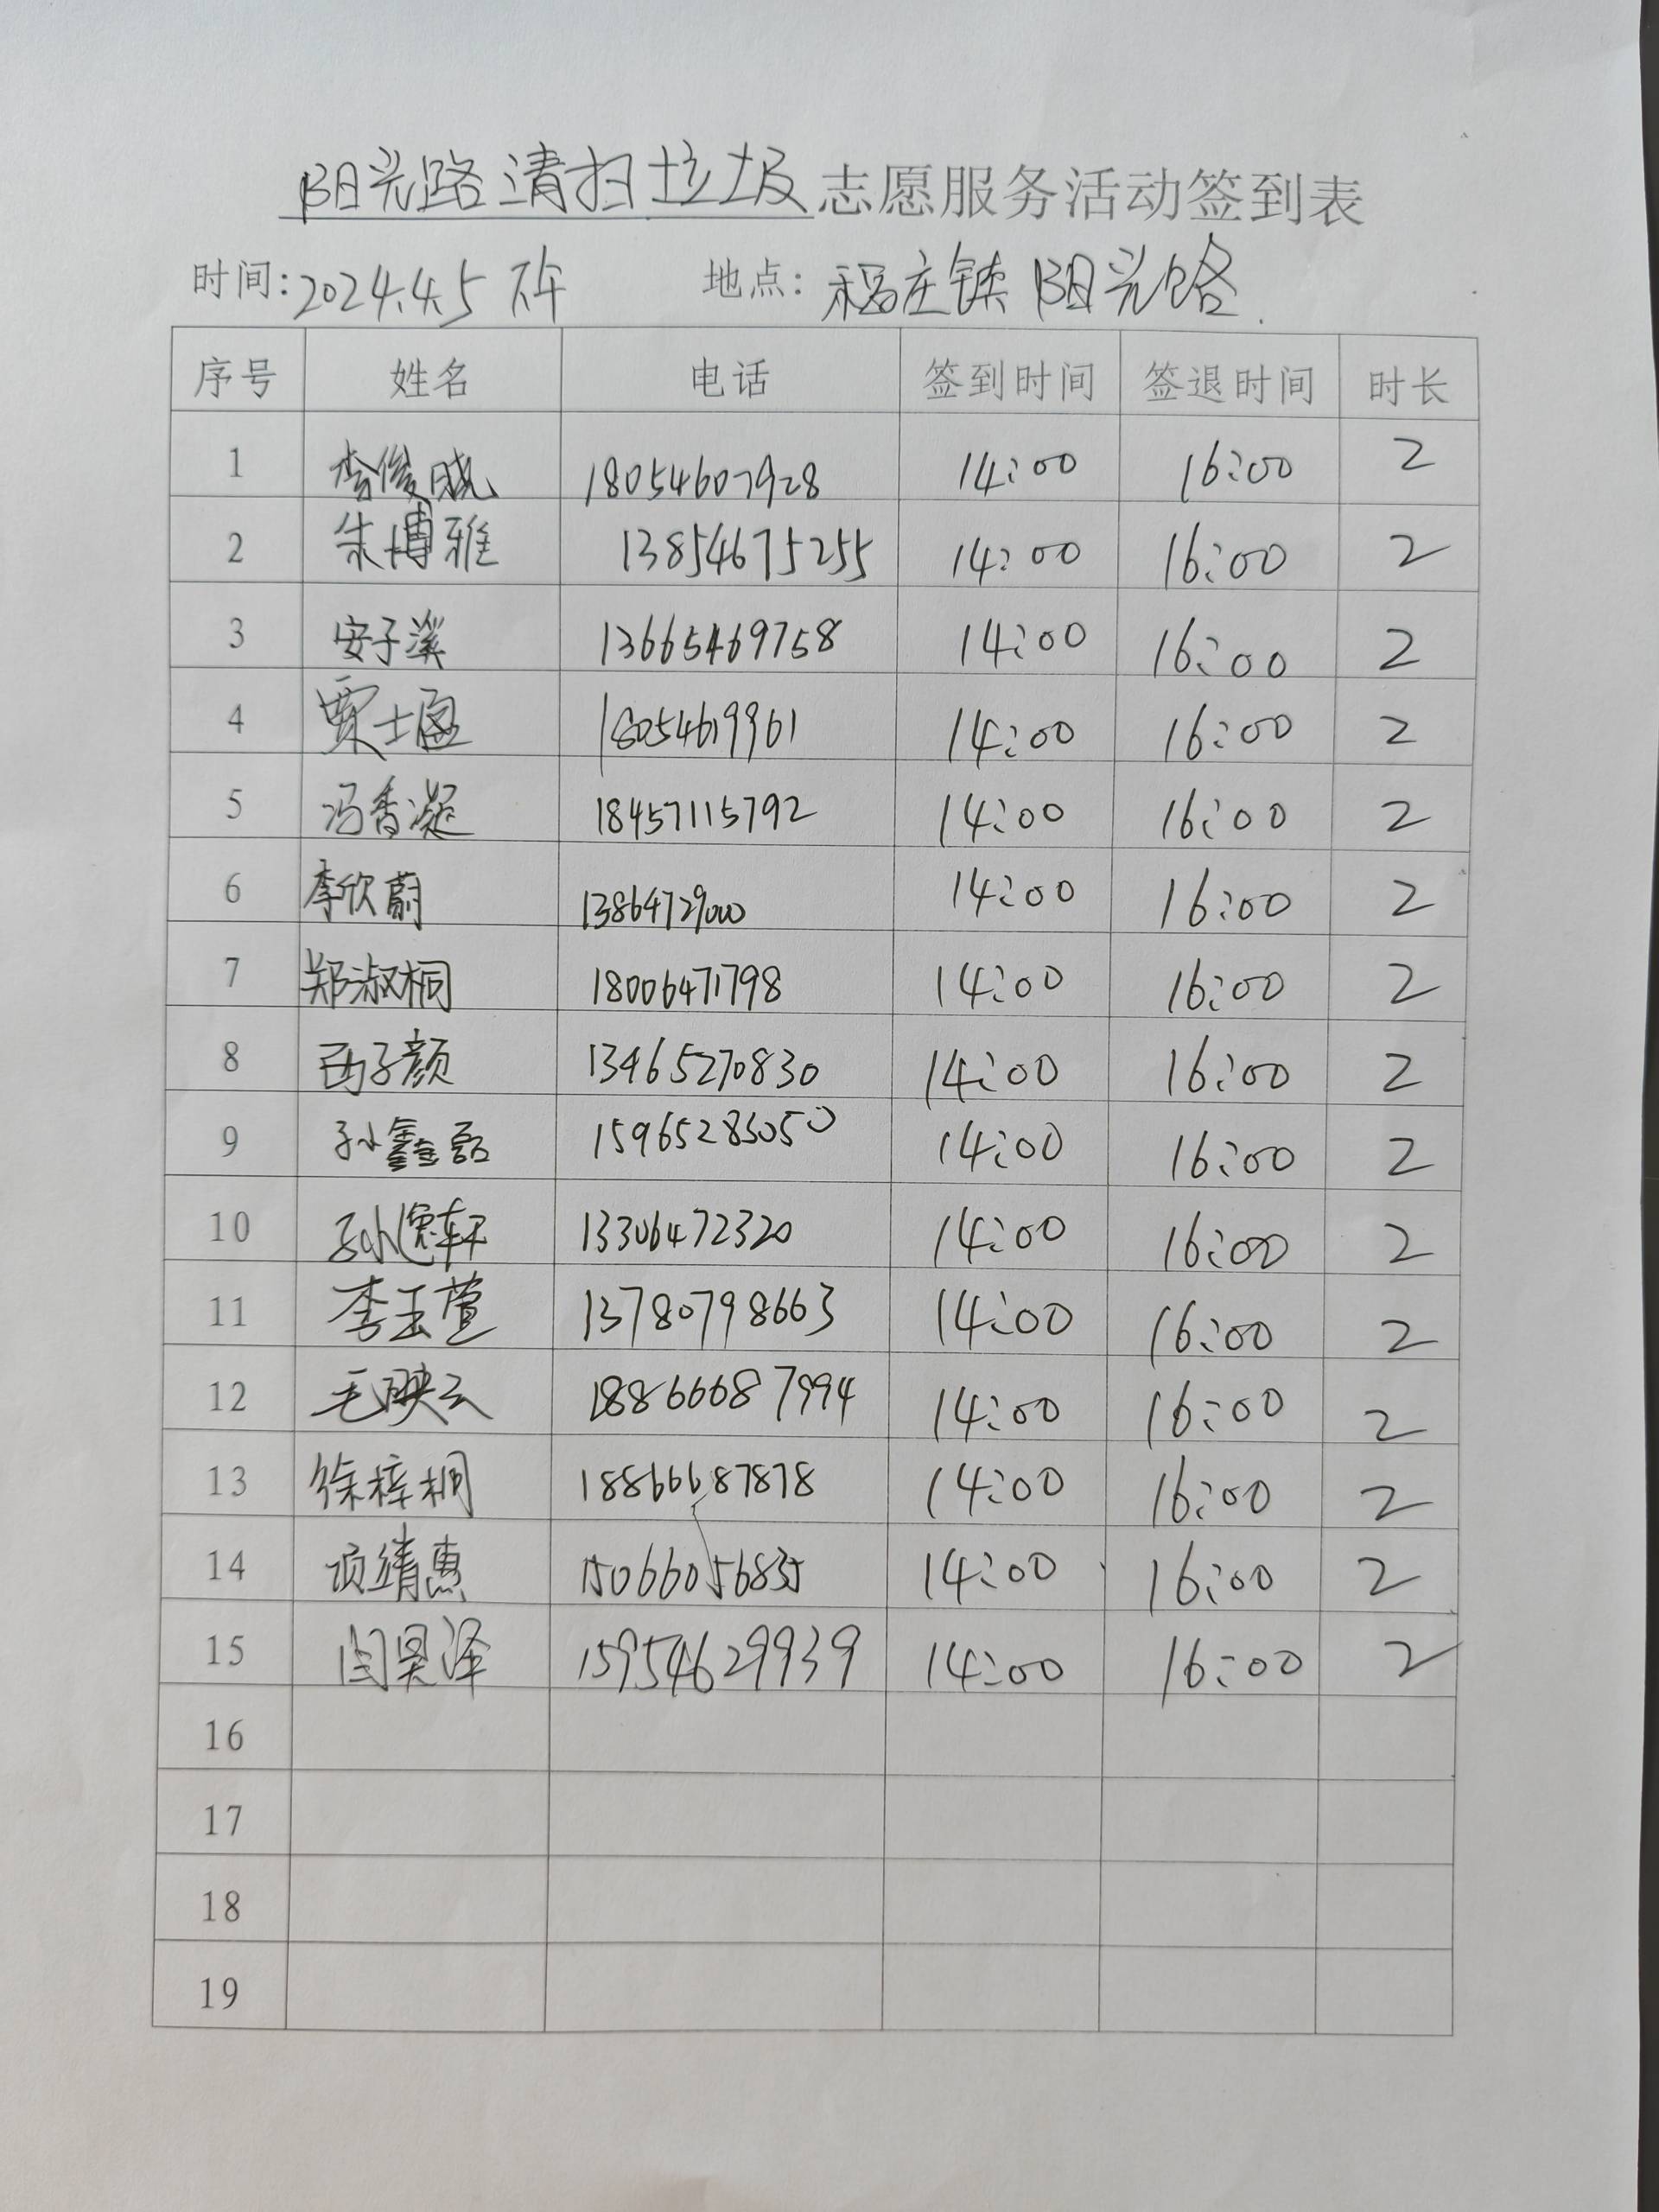 阳光路请扫垃圾志愿服务活动签到表
时间:2024.4.5 下午 地点:稻庄镇阳光路.
序号 姓名 电话 签到时间 签退时间 时长
1 李俊晓 18054607928 14:00 16:00 2
2 朱博雅 13854675255 14:00 16:00 2
3 安子溪 13665469758 14:00 16:00 2
4 贾士 18054619961 14:00 16:00 2
5 冯香凝 18457115792 14:00 16:00 2
6 李欣蔚 13864729000 14:00 16:00 2
7 郑淑桐 18006471798 14:00 16:00 2
8 西子颜 13465270830 14:00 16:00 2
9 孙鑫磊 15965283050 14:00 16:00 2
10 孙逸轩 13306472320 14:00 16:00 2
11 李玉萱 13780798663 14:00 16:00 2
12 毛映云 18866687994 14:00 16:00 2
13 徐梓桐 18866687878 14:00 16:00 2
14 项靖惠 15066056835 14:00 16:00 2
15 闫昊泽 15954629939 14:00 16:00 2
16
17
18
19